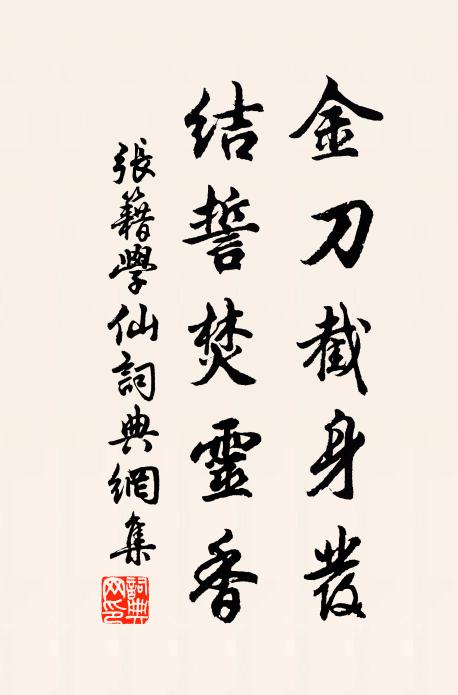 金刀截身發
結誓焚靈香
張籍學仙詞典網集
詞典網印